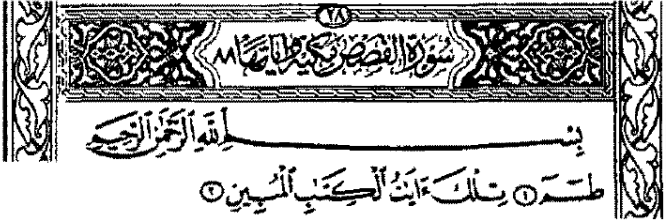 ٢٨
سُورَةُ القَصَصِ مَكِّيَّة وَآيَاتُهَا ٨٨
بِسْمِ ٱللَّهِ ٱلرَّحْمَٰنِ ٱلرَّحِيمِ
طسٓمٓ ١ تِلْكَ ءَايَٰتُ ٱلْكِتَٰبِ ٱلْمُبِينِ ٢